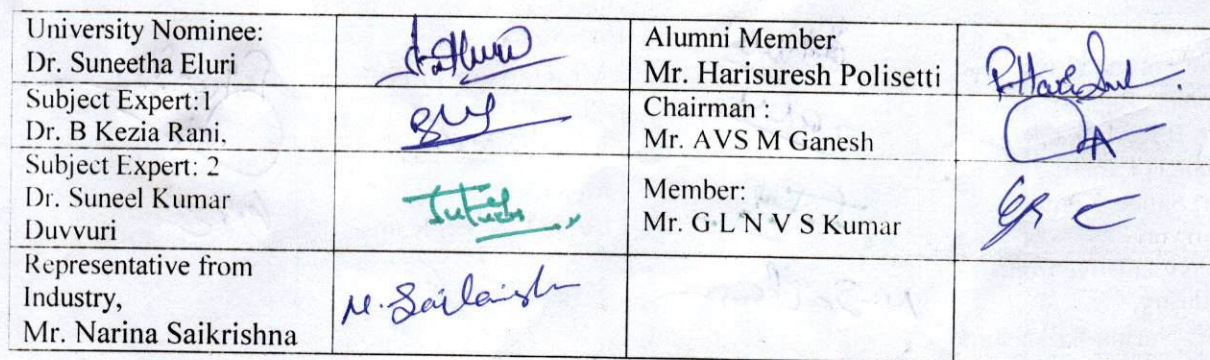 University Nominee:
Dr. Suneetha Eluri
Alumni Member
Mr. Harisuresh Polisetti
Subject Expert:1
Dr. B Kezia Rani.
Chairman :
Mr. AVS M Ganesh
Subject Expert: 2
Dr. Suneel Kumar
Duvvuri
Member:
Mr. G L N V S Kumar
Representative from
Industry,
Mr. Narina Saikrishna